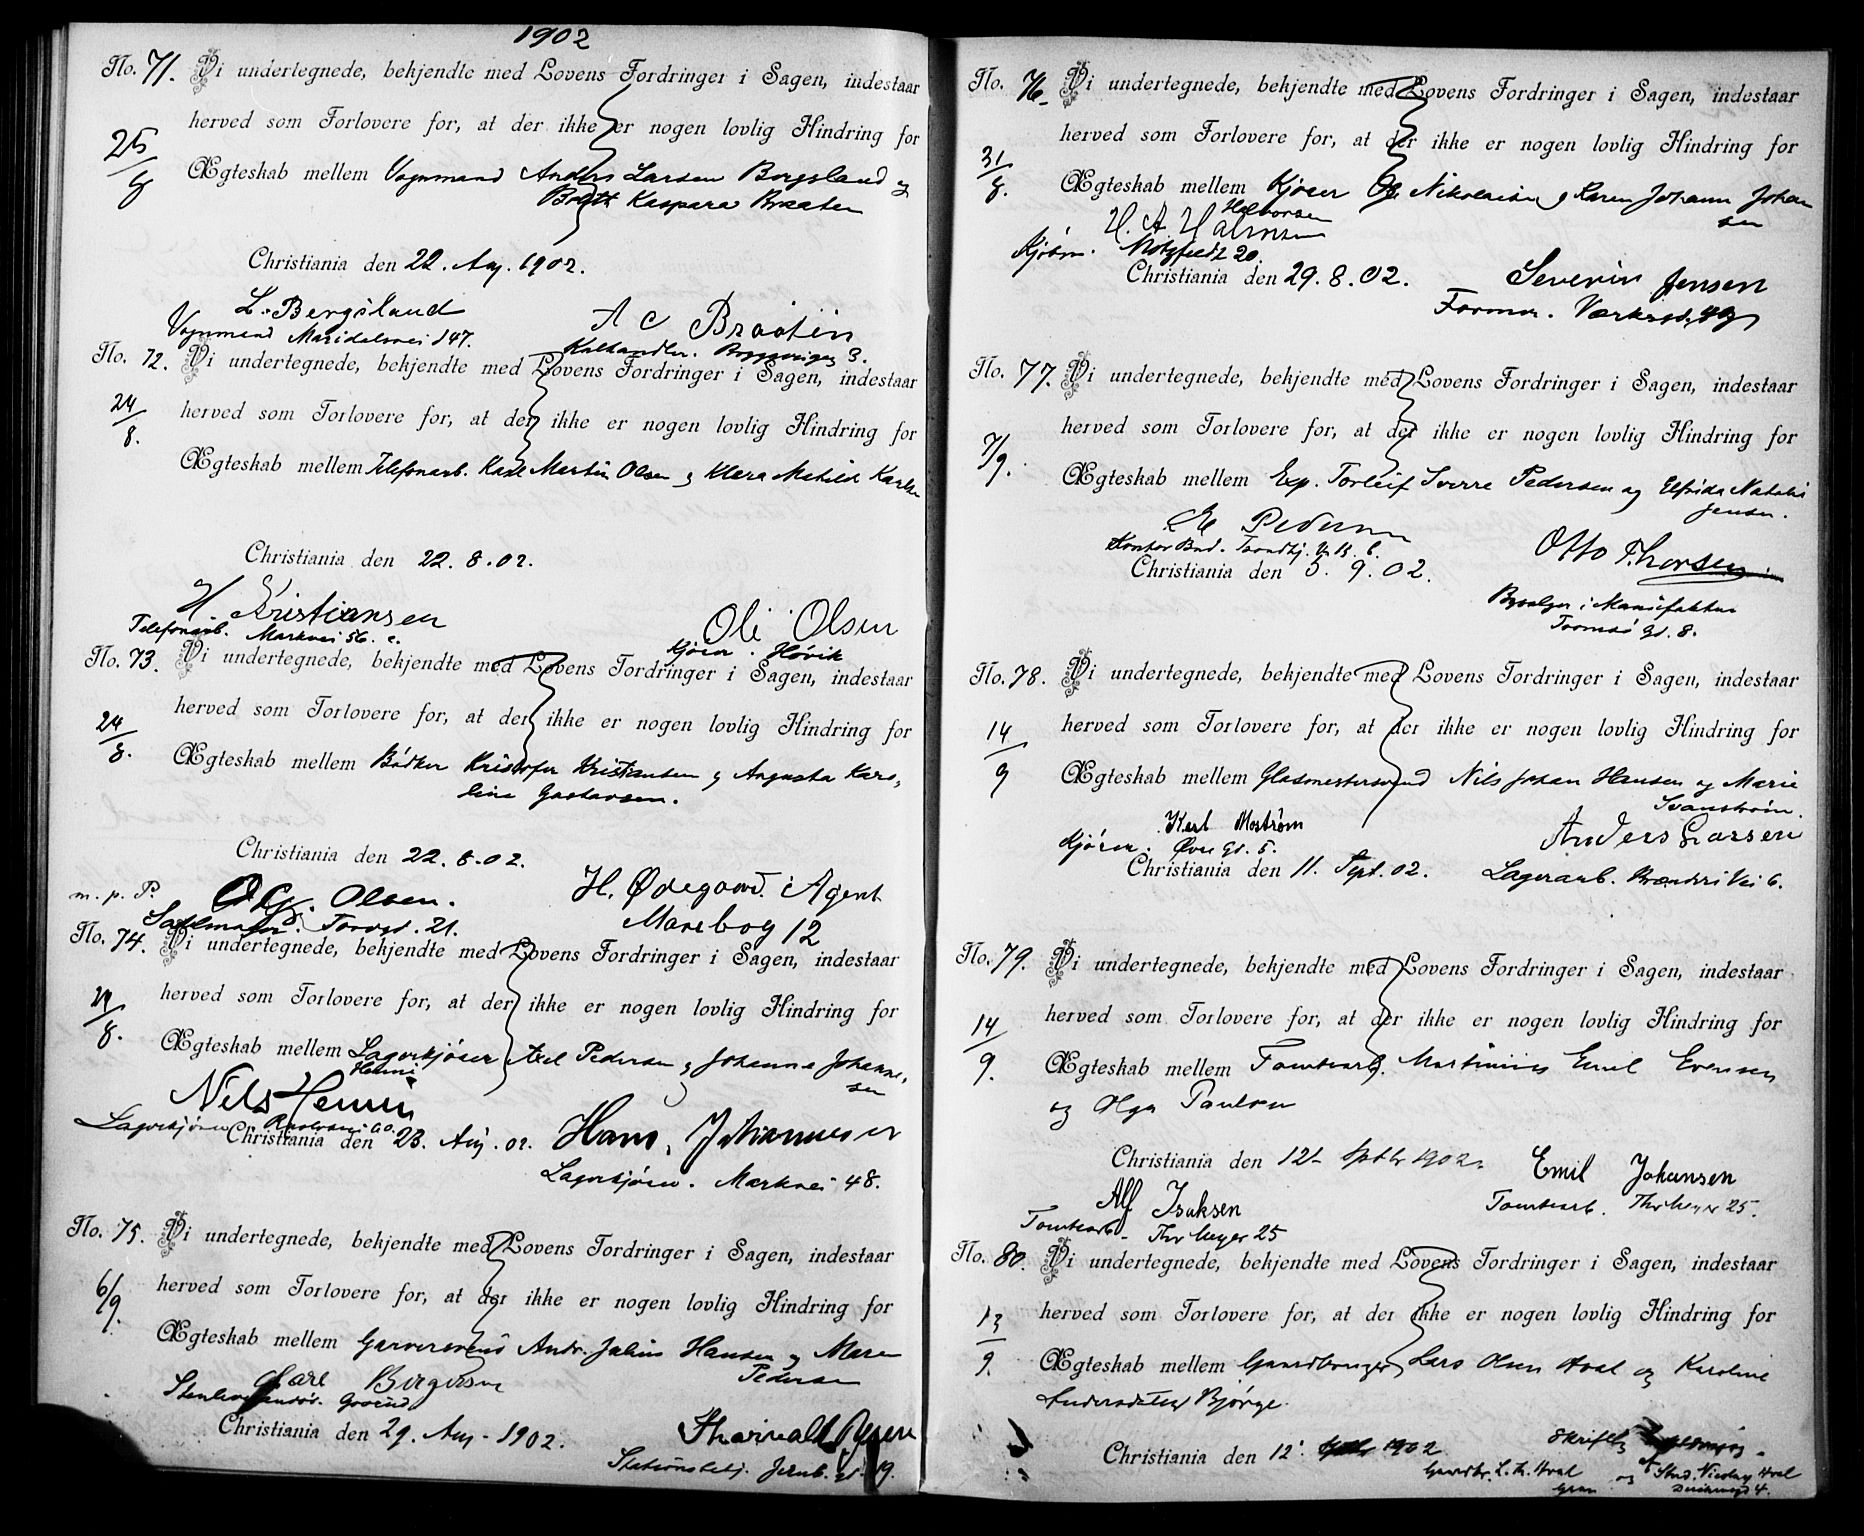 1902
No. 71. Vi undertegnede, bekjendte med Lovens Fordringer i Sagen, indestaar
herved som Forlovere for, at der ikke er nogen lovlig Hindring for
25/8
Ægteskab mellem Vognmand Anders Larsen Bergsland og
Kaspara Braaten
Christiania den 22. Aug. 1902.
L. Bergsland
Vognmand Maridalsvei 147.
A C Braaten
Kulhandler. 3.
No. 72. Vi undertegnede, bekjendte med Lovens Fordringer i Sagen, indestaar
24/8.
herved som Forlovere for, at der ikke er nogen lovlig Hindring for
Ægteskab mellem Telefonarb. Karl Martin Olsen og Klara Matild Karlsen
Christiania den 22. 8. 02.
H. Kristiansen
Telefonarb. Markvei 56. c.
Ole Olsen
Kjører. Høvik
No. 73. Vi undertegnede, bekjendte med Lovens Fordringer i Sagen, indestaar
24/8.
herved som Forlovere for, at der ikke er nogen lovlig Hindring for
Ægteskab mellem Bødker Kristofer Kristiansen og Augusta Karo-
line Gustavsen.
Christiania den 22. 8. 02.
m. p. P. Olsen.
Sadelmager. Torvgd. 21.
H. Ødegaard. Agent
Marebog 12
No. 74. Vi undertegnede, bekjendte med Lovens Fordringer i Sagen, indestaar
24/8.
herved som Forlovere for, at der ikke er nogen lovlig Hindring for
Ægteskab mellem Lagerkjører Axel Pedersen og Johanne Johanne-
sen
Nils
Lagerkjører
Christiania den 23. Aug. 02. Hans Johannesen
Lagerkjører. Markvei 48.
No. 75. Vi undertegnede, bekjendte med Lovens Fordringer i Sagen, indestaar
6/9.
herved som Forlovere for, at der ikke er nogen lovlig Hindring for
Ægteskab mellem Garversvend Andr. Julius Hansen og Maren
Pedersen
Carl Birgersen
Grorud
Christiania den 29. Aug. 1902.
Thorvald
Stationsbetj. Jernb. gd. 19.
No. 76. Vi undertegnede, bekjendte med Lovens Fordringer i Sagen, indestaar
herved som Forlovere for, at der ikke er nogen lovlig Hindring for
31/8.
Ægteskab mellem Kjører Ole Nikolaisen og Karen Johanne Johan
sen
Halvorsen
H. A. Halvorsen
Kjører. Motzfeldt 20.
Christiania den 29. 8. 02.
Severin Jensen
Former. Værksgd.
No. 77. Vi undertegnede, bekjendte med Lovens Fordringer i Sagen, indestaar
herved som Forlovere for, at der ikke er nogen lovlig Hindring for
7/9.
Ægteskab mellem Exp. Torleif Sverre Pedersen og Elfrida Natalie
Jensen.
Pedersen
Kontor Bud. Trondhj. V.
Christiania den 5. 9. 02.
Otto Thorsen
i Manufaktur
Tromsø Gd. 8.
No. 78. Vi undertegnede, bekjendte med Lovens Fordringer i Sagen, indestaar
herved som Forlovere for, at der ikke er nogen lovlig Hindring for
14/9
Ægteskab mellem Glasmestersvend Nils Johan Hansen og Marie
Svanstrøm.
Karl Moström
Kjører. Øvre Gd. 5.
Anders Larsen
Christiania den 11. Sept. 02. Lagerarb. Brenneri Vei 6.
No. 79. Vi undertegnede, bekjendte med Lovens Fordringer i Sagen, indestaar
herved som Forlovere for, at der ikke er nogen lovlig Hindring for
14/9.
Ægteskab mellem Tomtearb. Martinius Emil Evensen
og Olga Paulsen
Christiania den 12te Septbr 1902.
Emil Johansen
Tomtearb. Thv Meyer 25.
Alf Isaksen
Tomtearb. Thv Meyer 25
No. 80. Vi undertegnede, bekjendte med Lovens Fordringer i Sagen, indestaar
herved som Forlovere for, at der ikke er nogen lovlig Hindring for
13/9.
Ægteskab mellem Gaardbruger Lars Olsen Hval og Karoline
Andersdatter Bjørge.
Christiania den 12. Septbr 1902
Skriftlig
Gaardbr. L. Th. Hval
Gran
og af Stud. Nicolay Hval
4.